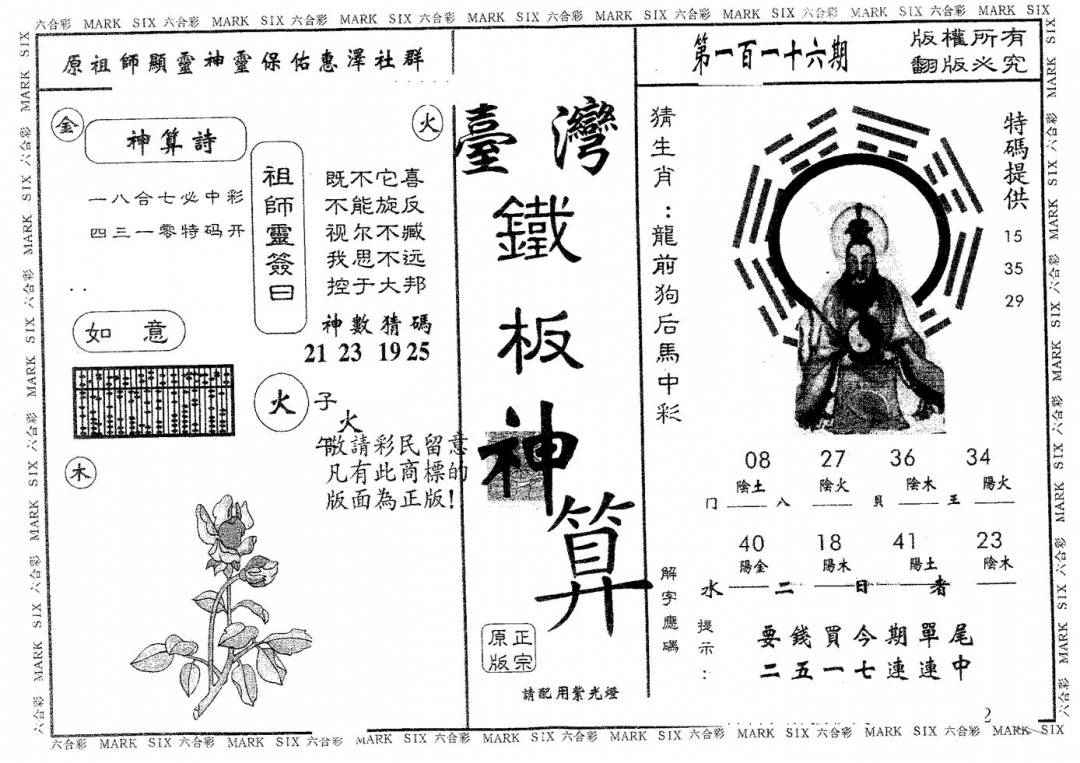 六合彩 MARK SIX 六合彩 MARK SIX 六合彩 MARK SIX 六合彩 MARK SIX 六合彩 MARK SIX 六合彩 MARK SIX 六合彩 MARK SIX 六合彩 MARK SIX
原祖師顯靈神靈保佑惠澤社群
金
火
神算詩
一八合七必中彩
四三一零特码开
祖師靈簽曰
既不它喜
不能旋反
视尔不臧
我思不远
控于大邦
神數猜碼
21 23 19 25
如意
火
子
火
午
木
敬請彩民留意
凡有此商標的
版面為正版!
臺灣
鐵板神算
正宗
原版
請配用紫光燈
第一百一十六期
版權所有
翻版必究
猜生肖:龍前狗后馬中彩
特碼提供
15
35
29
08 27 36 34
陰土 陰火 陰木 陽火
门 八 貝 王
40 18 41 23
陽金 陽木 陽土 陰木
水 二 日 者
解字應碼
提示:
要錢買今期單尾
二五一七連連中
2
六合彩 MARK SIX 六合彩 MARK SIX 六合彩 MARK SIX 六合彩 MARK SIX 六合彩 MARK SIX 六合彩 MARK SIX 六合彩 MARK SIX 六合彩 MARK SIX